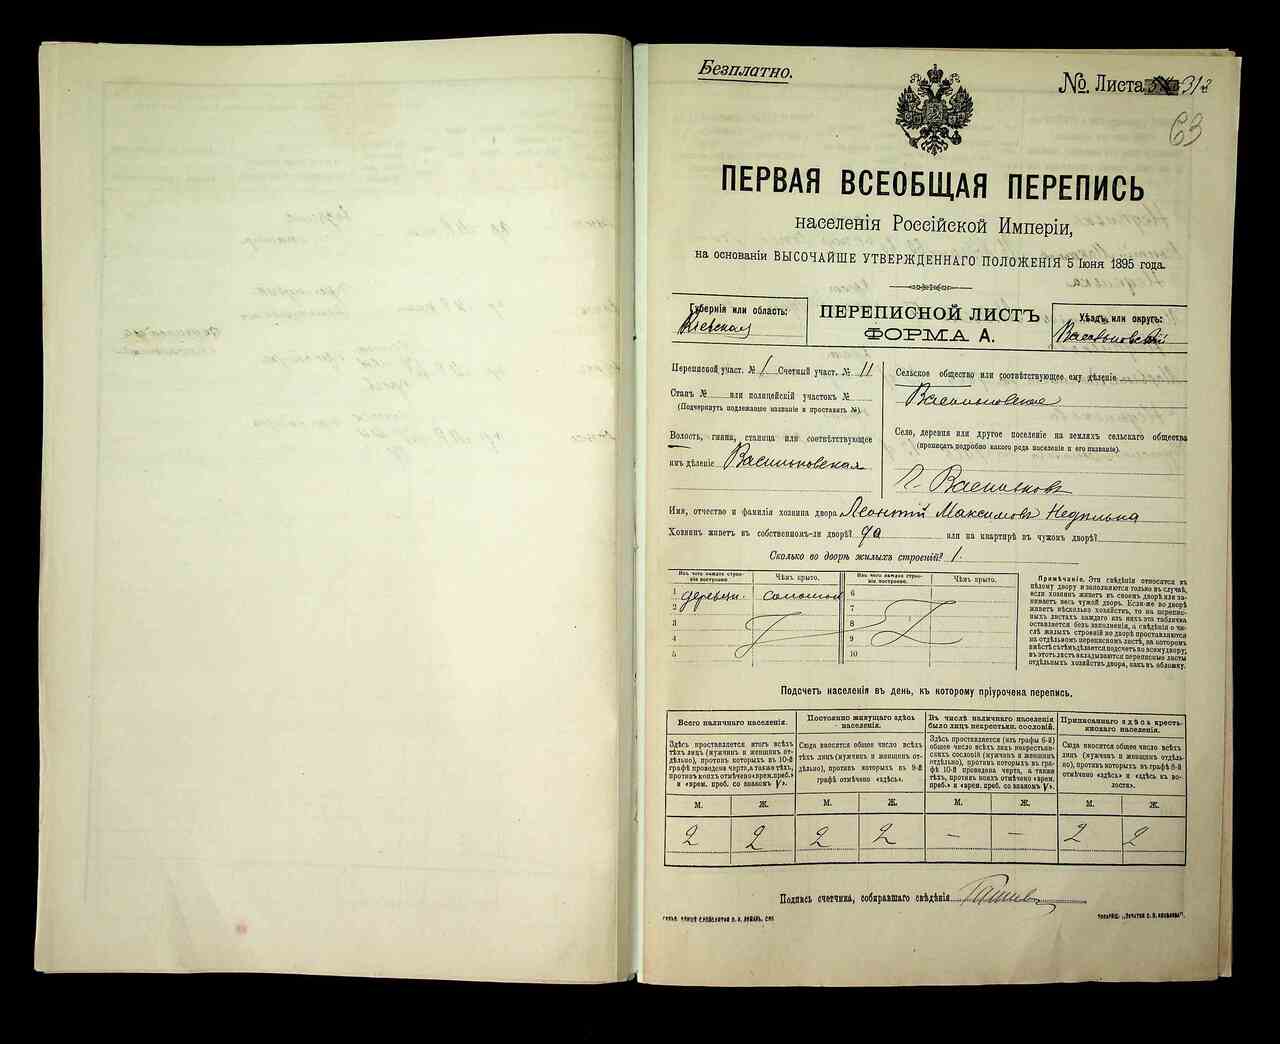 Безплатно.
№. Листа 312
63
ПЕРВАЯ ВСЕОБЩАЯ ПЕРЕПИСЬ
населенія Россійской Имперіи,
на основаніи ВЫСОЧАЙШЕ УТВЕРЖДЕННАГО ПОЛОЖЕНІЯ 5 Іюня 1895 года.
Губернія или область:
Кіевская
ПЕРЕПИСНОЙ ЛИСТЪ
ФОРМА А.
Уѣздъ или округъ:
Васильковскій
Переписной участ. № 1 Счетный участ. № 11
Станъ № или полицейскій участокъ №
(Подчеркнуть подлежащее названіе и проставить №).
Волость, гмина, станица или соотвѣтствующее
имъ дѣленіе Васильковская
Сельское общество или соотвѣтствующее ему дѣленіе
Васильковское
Село, деревня или другое поселеніе на земляхъ сельскаго общества
(прописать подробно какого рода поселеніе и его названіе).
г. Васильковъ
Имя, отчество и фамилія хозяина двора Леонтій Максимовъ Недѣлька
Хозяинъ живетъ въ собственномъ-ли дворѣ? да или на квартирѣ въ чужомъ дворѣ?
Сколько во дворѣ жилыхъ строеній? 1.
Изъ чего каждое строеніе построено. Чѣмъ крыто. Изъ чего каждое строеніе построено. Чѣмъ крыто.
1 деревян. соломой 6
2 7
3 8
4 9
5 10
Примѣчаніе. Эти свѣдѣнія относятся къ
цѣлому двору и заполняются только въ случаѣ,
если хозяинъ живетъ въ своемъ дворѣ или занимаетъ
весь чужой дворъ. Если-же во дворѣ
живетъ нѣсколько хозяйствъ, то на переписныхъ
листахъ каждаго изъ нихъ эта табличка
оставляется безъ заполненія, а свѣдѣнія о числѣ
жилыхъ строеній во дворѣ проставляются
на отдѣльномъ переписномъ листѣ, на которомъ
вмѣстѣ съ тѣмъ дѣлается подсчетъ по всему двору;
въ этотъ листъ вкладываются переписные листы
отдѣльныхъ хозяйствъ двора, какъ въ обложку.
Подсчетъ населенія въ день, къ которому пріурочена перепись.
Всего наличнаго населенія.
Здѣсь проставляется итогъ всѣхъ
тѣхъ лицъ (мужчинъ и женщинъ отдѣльно),
противъ которыхъ въ 10-й
графѣ проведена черта, а также тѣхъ,
противъ коихъ отмѣчено «врем. преб.»
и «врем. преб. со знакомъ V».
Постоянно живущаго здѣсь
населенія.
Сюда вносится общее число всѣхъ
тѣхъ лицъ (мужчинъ и женщинъ отдѣльно),
противъ которыхъ въ 9-й
графѣ отмѣчено «здѣсь».
Въ числѣ наличнаго населенія
было лицъ некрестьян. сословій.
Здѣсь проставляется (изъ графы 6-й)
общее число всѣхъ лицъ некрестьянскихъ
сословій (мужчинъ и женщинъ
отдѣльно), противъ которыхъ въ графѣ
10-й проведена черта, а также
тѣхъ, противъ коихъ отмѣчено «врем.
преб.» и «врем. преб. со знакомъ V».
Приписаннаго здѣсь крестьянскаго
населенія.
Сюда вносится общее число всѣхъ
лицъ (мужчинъ и женщинъ отдѣльно),
противъ которыхъ въ графѣ 8-й
отмѣчено «здѣсь» и «здѣсь къ волости».
М. Ж. М. Ж. М. Ж. М. Ж.
2 2 2 2 – – 2 2
Подпись счетчика, собиравшаго свѣдѣнія